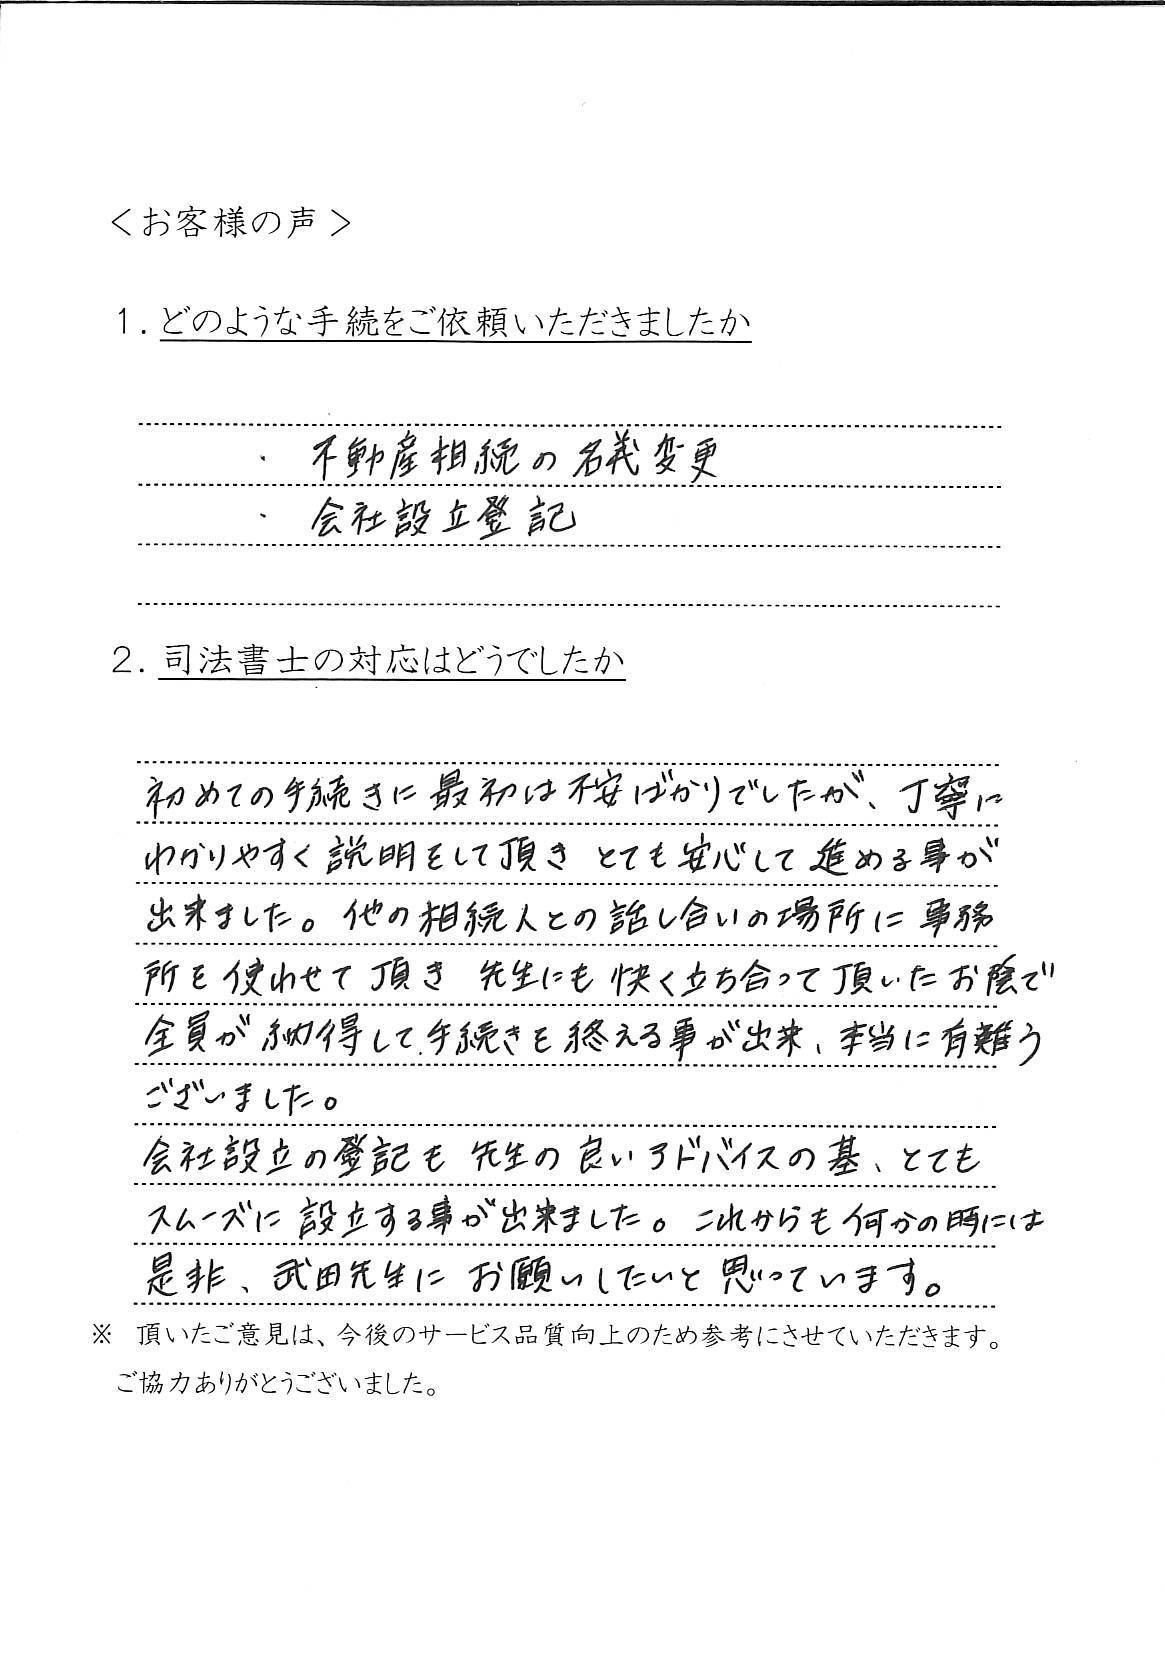 ＜お客様の声＞
１．どのような手続をご依頼いただきましたか
・ 不動産相続の名義変更
・ 会社設立登記
２．司法書士の対応はどうでしたか
初めての手続きに最初は不安ばかりでしたが、丁寧に
わかりやすく説明をして頂き とても安心して進める事が
出来ました。他の相続人との話し合いの場所に事務
所を使わせて頂き 先生にも快く立ち合って頂いたお陰で
全員が納得して手続きを終える事が出来、本当に有難う
ございました。
会社設立の登記も先生の良いアドバイスの基、とても
スムーズに設立する事が出来ました。これからも何かの時には
是非、武田先生にお願いしたいと思っています。
※ 頂いたご意見は、今後のサービス品質向上のため参考にさせていただきます。
ご協力ありがとうございました。